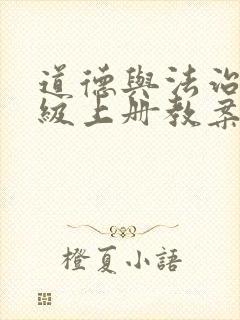 道德與法治
級上册教案
橙夏小語